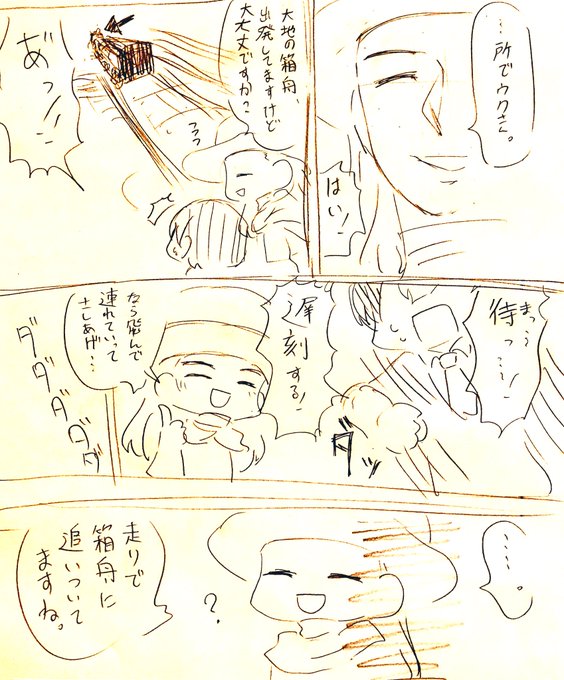 …所でウクさん。
はい!
大地の箱舟、
出発してますけど
大丈夫ですか?
あっ!!
待っ…!
遅刻する!
ダッ
なら飛んで
連れていって
さしあげ…
ダダダダダ
……。
走りで
箱舟に
追いついて
ますね。
?